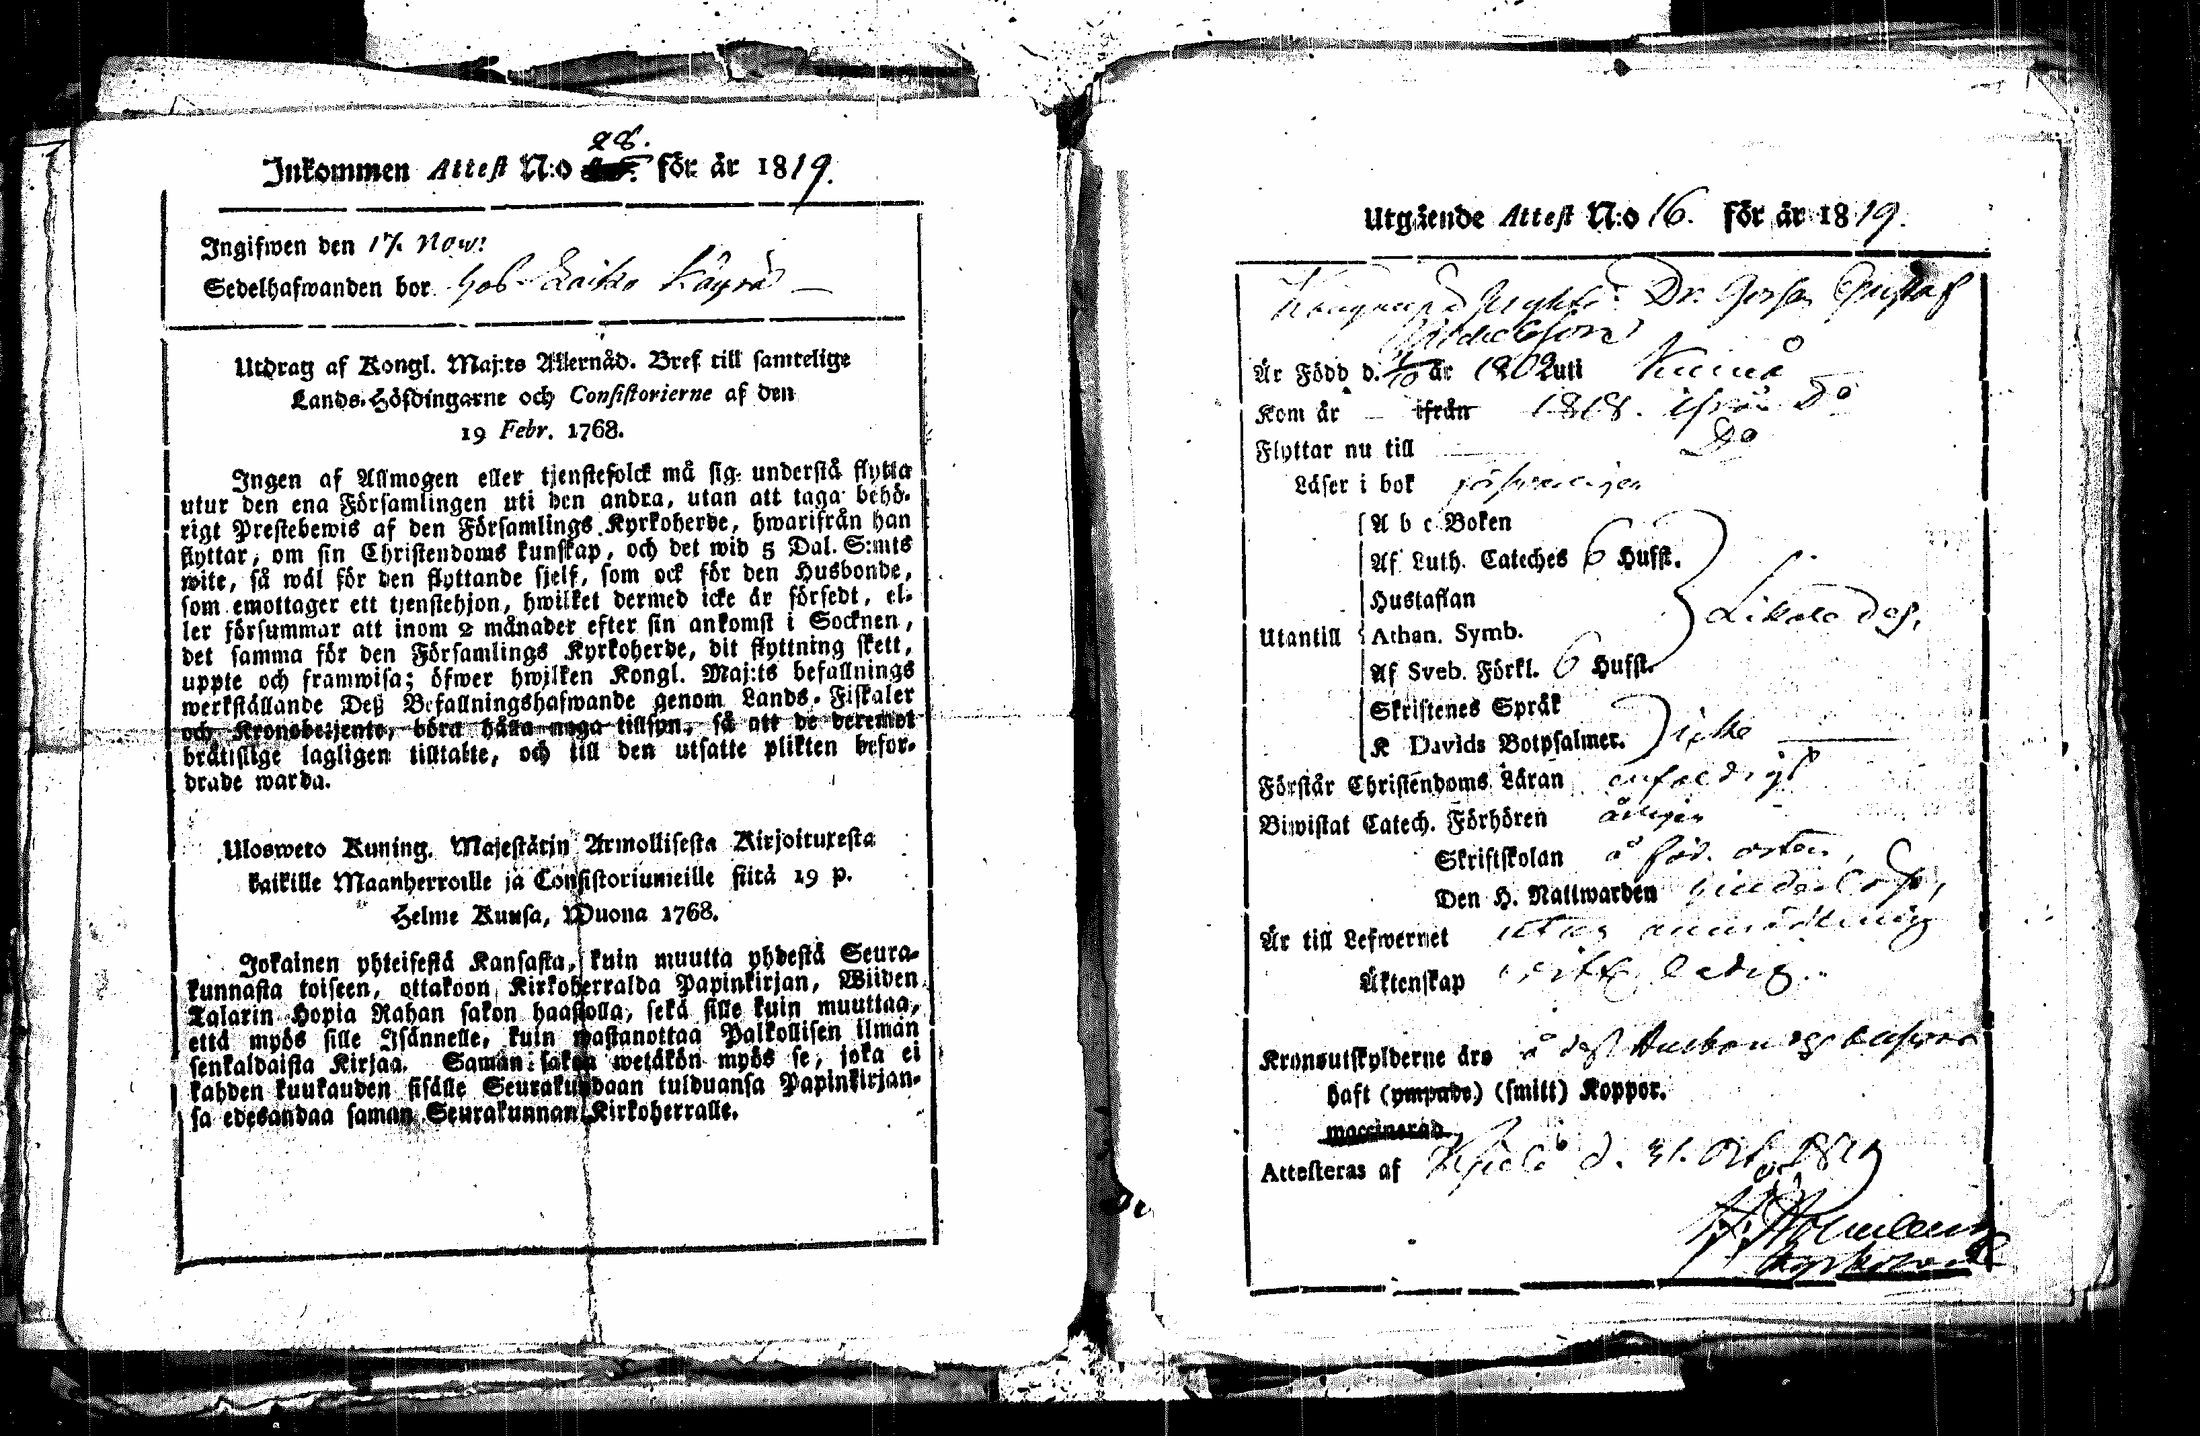 28.
Inkommen Attest N:o för år 1819.
Ingifwen den 17. Now:
Sedelhafwanden bor hos
Utdrag af Kongl. Maj:ts Allernåd. Bref till samtelige
Lands-Höfdingarne och Consistorierne af den
19 Febr. 1768.
Ingen af Allmogen eller tjenstefolck må sig understå flytta
utur den ena Församlingen uti den andra, utan att taga behö-
rigt Prestebewis af den Församlings Kyrkoherde, hwarifrån han
flyttar, om sin Christendoms kunskap, och det wid 5 Dal. S:mts
wite, så wäl för den flyttande sjelf, som ock för den Husbonde,
som emottager ett tjenstehjon, hwilket dermed icke är försedt, el-
ler försummar att inom 2 månader efter sin ankomst i Socknen,
det samma för den Församlings Kyrkoherde, dit flyttning skett,
uppte och framwisa; öfwer hwilken Kongl. Maj:ts befallnings
werkställande Deß Befallningshafwande genom Lands-Fiskaler
och Kronobetjente, böra hålla noga tillsyn, så att de deremot
brätislige lagligen tilltalte, och till den utsatte plikten befor-
drade warda.
Ulosweto Kuning. Majestätin Armollisesta Kirjoituxesta
kaikille Maanherroille ja Consistoriumeille siitä 19 p.
Helme Kuusa, Wuona 1768.
Jokainen yhteisestä Kansasta, kuin muutta yhdestä Seura-
kunnasta toiseen, ottakoon Kirkoherralda Papinkirjan, Wiiden
Talarin Hopia Rahan sakon haastolla, sekä sille kuin muuttaa,
että myös sille Isännelle, kuin wastanottaa Palkollisen ilman
senkaldaista Kirjaa. Saman sakon wetäkön myös se, joka ei
kahden kuukauden sisälle Seurakundaan tulduansa Papinkirjan-
sa edesandaa saman Seurakunnan Kirkoherralle.
Utgående Attest N:o 16. för år 1819.
Dr. Gustaf
Är Född d. år 1802 uti Kumå
Kom år ifrån 1818. ifrån Do
Flyttar nu till Do
Läser i bok
A b c Boken
Af Luth. Cateches 6 Hufst.
Hustaflan
Utantill Athan. Symb. Likaledes,
Af Sveb. Förkl. 6 Hufst.
Skriftenes Språk
K Davids Botpsalmer. icke
Förstår Christendoms Läran enfaldigt
Biwistat Catech. Förhören årligen
Skriftskolan å föd. orten,
Den H. Nattwarden
Är till Lefwernet utan anmärkning
Äktenskap ledig.
Kronoutskylderne äro å
haft (ympade) (smitt) Koppor.
waccinerad
Attesteras af d. 31. Oct. 1819